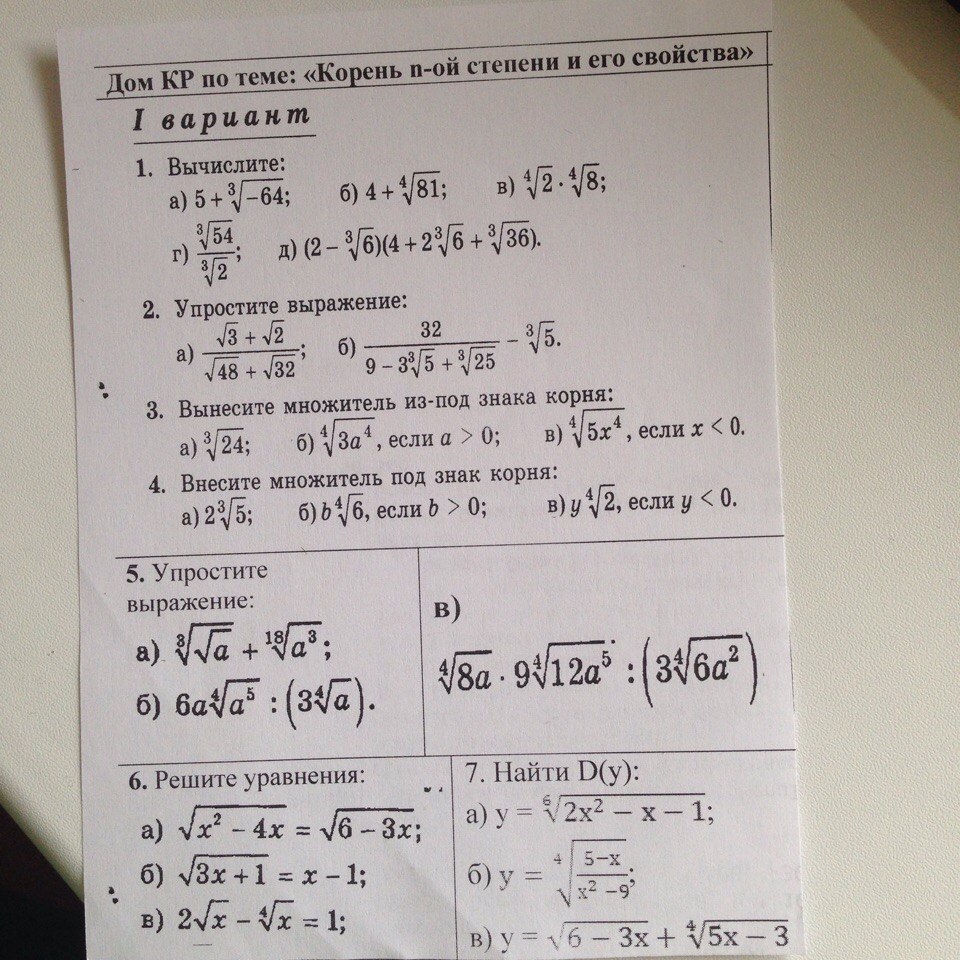 Дом КР по теме: «Корень n-ой степени и его свойства»
I вариант
1. Вычислите:
а) 5 + ∛(−64); б) 4 + ∜81; в) ∜2 · ∜8;
г) ∛54 / ∛2; д) (2 − ∛6)(4 + 2∛6 + ∛36).
2. Упростите выражение:
а) (√3 + √2) / (√48 + √32); б) 32 / (9 − 3∛5 + ∛25) − ∛5.
3. Вынесите множитель из-под знака корня:
а) ∛24; б) ∜(3a⁴), если a > 0; в) ∜(5x⁴), если x < 0.
4. Внесите множитель под знак корня:
а) 2∛5; б) b∜6, если b > 0; в) y∜2, если y < 0.
5. Упростите
выражение:
а) ∛(√a) + ¹⁸√(a³);
б) 6a∜(a⁵) : (3∜a).
в)
∜(8a) · 9∜(12a⁵) : (3∜(6a²))
6. Решите уравнения:
а) √(x² − 4x) = √(6 − 3x);
б) √(3x + 1) = x − 1;
в) 2√x − ∜x = 1;
7. Найти D(y):
а) y = ⁶√(2x² − x − 1);
б) y = ⁴√((5−x) / (x² −9));
в) y = √(6 − 3x) + ∜(5x − 3)